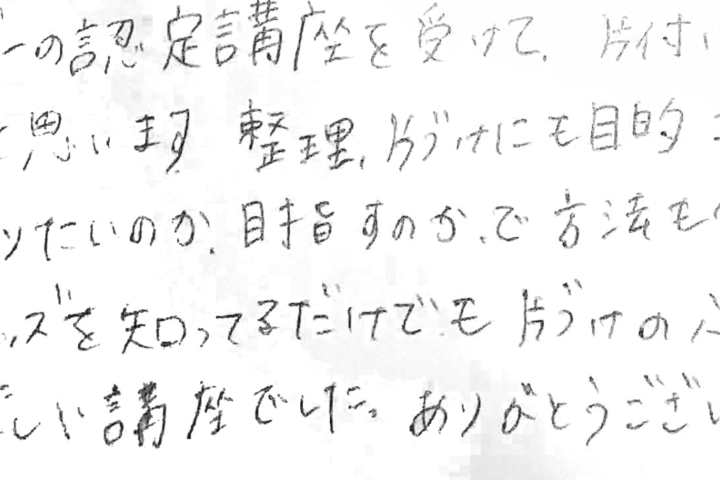 ーの認定講座を受けて、片付い
と思います 整理、片づけにも目的
りたいのか、目指すのか、で方法も
ッズを知ってるだけでも片づけの
しい講座でした。ありがとうござい